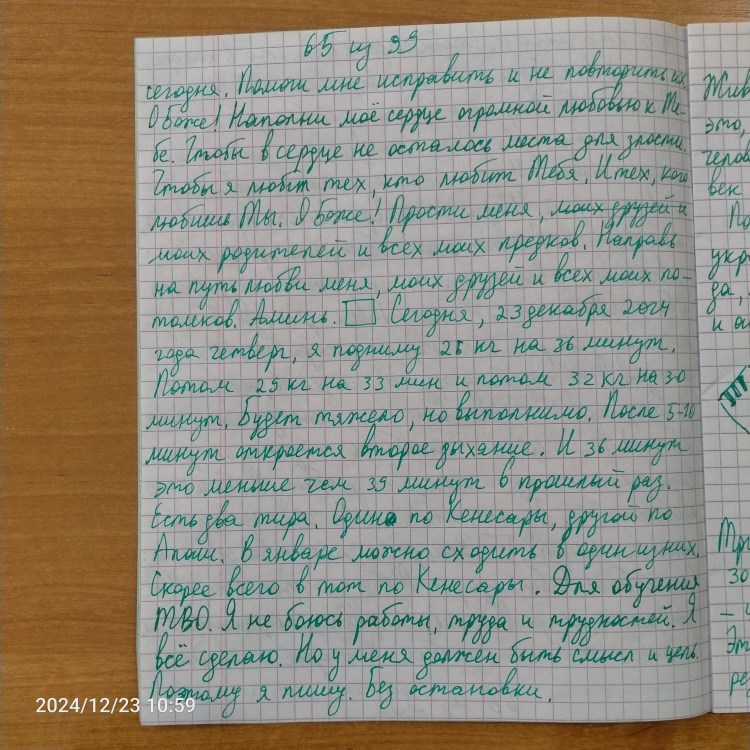 65 из 99
сегодня. Помоги мне исправить и не повторить их.
О Боже! Наполни моё сердце огромной любовью к Те-
бе. Чтобы в сердце не осталось места для злости.
Чтобы я любил тех, кто любит Тебя. И тех, кого
любишь Ты. О Боже! Прости меня, моих друзей и
моих родителей и всех моих предков. Направь
на путь любви меня, моих друзей и всех моих по-
томков. Аминь. Сегодня, 23 декабря 2024
года четверг, я подниму 25 кг на 36 минут.
Потом 29 кг на 33 мин и потом 32 кг на 30
минут. Будет тяжело, но выполнимо. После 5-10
минут откроется второе дыхание. И 36 минут
это меньше чем 39 минут в прошлый раз.
Есть два тира. Один по Кенесары, другой по
в январе можно сходить в один из них.
Скорее всего в тот по Кенесары. Для обучения
ТВО. Я не боюсь работы, труда и трудностей. Я
всё сделаю. Но у меня должен быть смысл и цель.
Поэтому я пишу. Без остановки.
Жив
это,
челов
век
По
укр
да,
и
Тр
зо
Эт
ре
2024/12/23 10:59